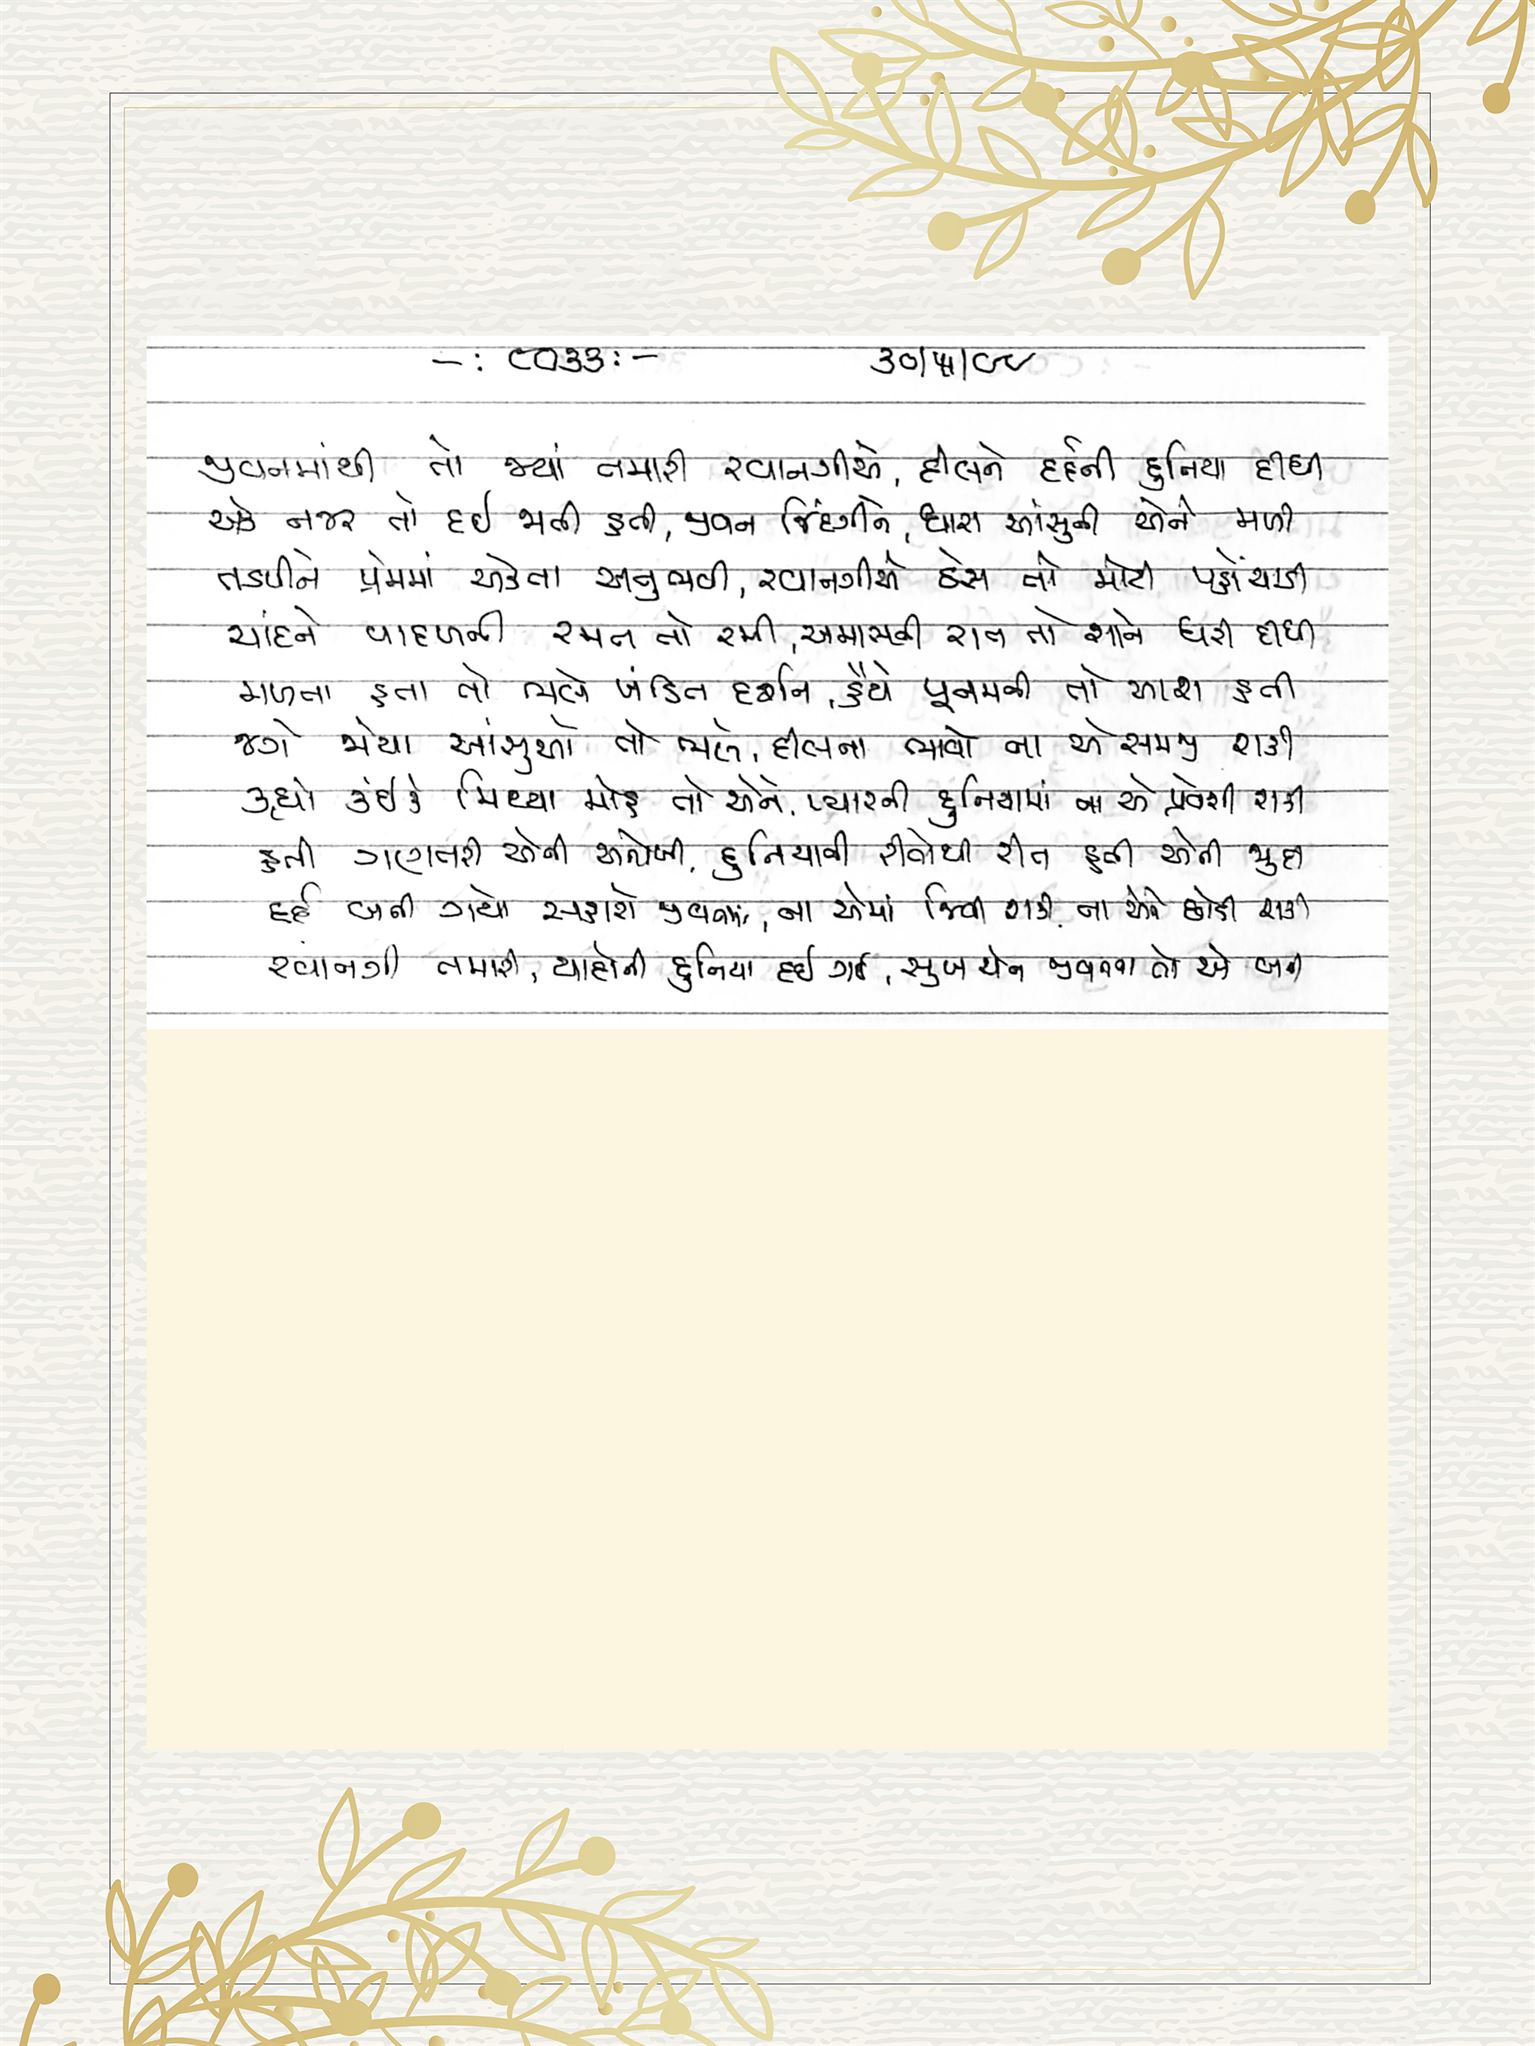 -: ૮૦૩૩ :- ૩૦/૫/૯૯
જીવનમાંથી તો જ્યાં તમારી રવાનગીએ, દીલને દર્દની દુનિયા દીધી
એક નજર તો દઈ ભલી હતી, જીવન જિંદગીને, ધારા આંસુની એને મળી
તડપીને પ્રેમમાં એકતા અનુભવી, રવાનગીએ ઠેસ તો મોટી પહોંચાડી
ચાંદને વાદળની રમત તો રમી, અમાસની રાત તો શાને ધરી દીધી
મળતા હતા તો ભલે ખંડિત દર્શન, હૈયે પૂનમની તો આશ હતી
જગે જોયા આંસુઓ તો ભલે, દીલના ભાવો ના એ સમજી શકી
કહ્યો કંઈકે મિથ્યા મોહ તો એને, પ્યારની દુનિયામાં ના એ પ્રવેશી શકી
હતી ગણતરી એની અનોખી, દુનિયાની રીતોથી રીત હતી એની જુદી
દર્દ બની ગયો સહારો જીવનમાં, ના એમાં જિવી શકી, ના એને છોડી શકી
રવાનગી તમારી, યાદોની દુનિયા દઈ ગઈ, સુખ ચેન જીવનના તો એ બની